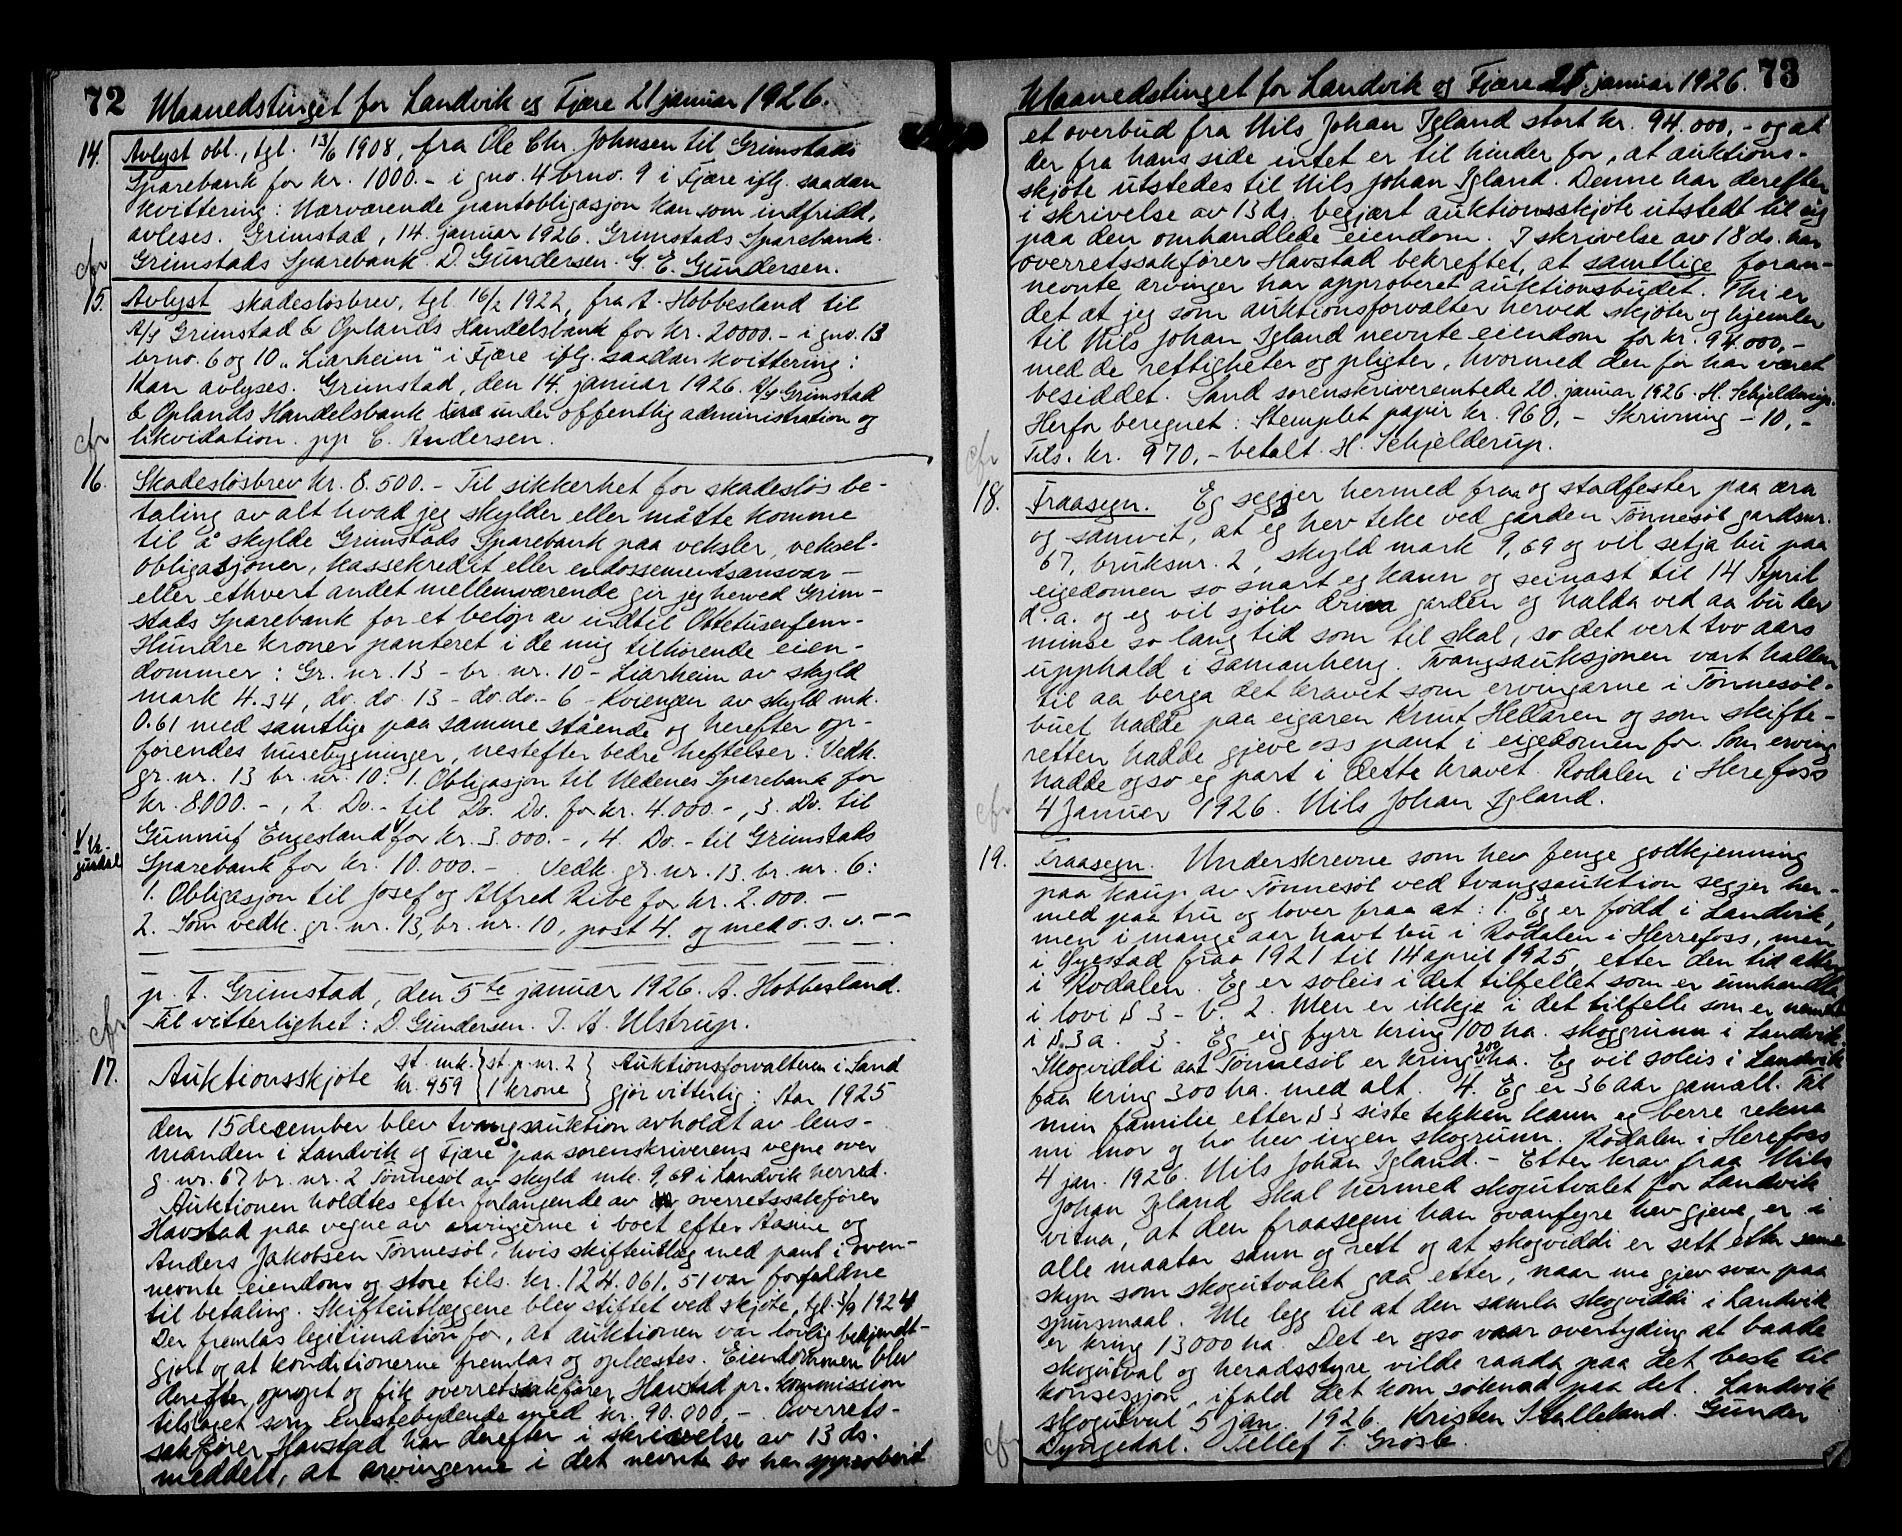 72 Maanedstinget for Landvik og Fjære 21 januar 1926.
14. Avlyst obl., tgl. 13/6 1908, fra Ole Chr. Johnsen til Grimstads
Sparebank for kr. 1000.- i gno. 4 brno. 9 i Fjære iflg. saadan
kvittering: Nærværende pantobligasjon kan som indfridd,
avleses. Grimstad, 14. januar 1926. Grimstads Sparebank.
cfr Grimstads Sparebank. D. Gundersen. G. E. Gundersen.
15. Avlyst skadesløsbrev, tgl. 16/2 1922, fra A. Hobbesland til
A/S Grimstad & Oplands Handelsbank for kr. 20000.- i gno. 13
brno. 6 og 10 „Liarheim" i Fjære iflg. saadan kvittering:
Kan avlyses. Grimstad, den 14. januar 1926. A/S Grimstad
& Oplands Handelsbank under offentlig administration og
cfr likvidation. pp C. Andersen.
16. Skadesløsbrev kr. 8.500.- Til sikkerhet for skadesløs be-
taling av alt hvad jeg skylder eller måtte komme
til å skylde Grimstads Sparebank paa veksler, veksel-
obligasjoner, kassekredit eller endossementsansvar -
eller ethvert andet mellemværende gir jeg herved Grim-
stads Sparebank for et beløp av indtil Ottetusenfem-
Hundre kroner panteret i de mig tilhørende eien-
dommer: Gr. nr. 13 - br. nr. 10 - Liarheim av skyld
mark 4.34, do. do. 13 - do. do. - 6 - Kviengen av skyld mk.
0.61 med samtlige paa samme stående og herefter op-
førendes husebygninger, nestefter bedre heftelser: Vedk.
gr. nr. 13 br. nr. 10: 1. Obligasjon til Nedenes Sparebank for
kr. 8000.-, 2. Do. - til Do. Do. for kr. 4.000 -, 3. Do. til
Gunnuf Engesland for kr. 3.000.-, 4. Do. - til Grimstads
Sparebank for kr. 10.000.- Vedk. gr. nr. 13. br. nr. 6:
1. Obligasjon til Josef og Alfred Ribe for kr. 2.000.-
2. Som vedk. gr. nr. 13, br. nr. 10, post 4. og med o. s. v. --
p. t. Grimstad, den 5te januar 1926. A. Hobbesland.
cfr Til vitterlighet: D. Gundersen. T. A. Ulstrup.
17. Auktionsskjøte st. mk. kr. 959 st. p. nr. 2 1 krone Auktionsforvalteren i Sand
gjør vitterlig: Aar 1925
den 15 december blev tvangsauktion avholdt av lens-
manden i Landvik og Fjære paa sorenskriverens vegne over
g. nr. 67 br. nr. 2 Tønnesøl av skyld mk. 9,69 i Landvik herred.
Auktionen holdtes efter forlangende av overretssakfører
Havstad paa vegne av arvingerne i boet efter Aasne og
Anders Jakobsen Tønnesøl, hvis skifteutlæg med pant i oven-
nevnte eiendom og store tils. kr. 124.061,51 var forfaldne
til betaling. Skifteutlæggene blev stiftet ved skjøte, tgl. 3/9 1924
Der fremlas legitimation for, at auktionen var lovlig bekjendt-
gjort og at konditionerne fremlas og oplæstes. Eiendommen blev
derefter opropt og fik overretssakfører Havstad pr. kommission
tilslaget som enestebydende med kr. 90.000,-. Overrets-
sakfører Havstad har derefter i skrivelse av 13 ds.
meddelt, at arvingerne i det nevnte bo har approbert
Maanedstinget for Landvik og Fjære 25 januar 1926. 73
et overbud fra Nils Johan Igland stort kr. 94.000,- og at
der fra hans side intet er til hinder for, at auktions-
skjøte utstedes til Nils Johan Igland. Denne har derefter
i skrivelse av 13 ds. begjært auktionsskjøte utstedt til sig
paa den omhandlede eiendom. I skrivelse av 18 ds. har
overretssakfører Havstad bekreftet, at samtlige foran-
nevnte arvinger har approberet auktionsbudet. Thi er
det at jeg som auktionsforvalter herved skjøter og hjemler
til Nils Johan Igland nevnte eiendom for kr. 94.000,-
med de rettigheter og pligter, hvormed den før har været
besiddet. Sand sorenskriverembede 20. januar 1926. H. Schjelderup.
Herfor beregnet: Stemplet papir kr. 960,- Skrivning - 10,-
cfr Tils. kr. 970,- betalt. H. Schjelderup.
18. Fraasegn. Eg segjer hermed fraa og stadfester paa æra
og samvet, at eg hev teke ved garden Tønnesøl gardsnr.
67, bruksnr. 2, skyld mark 9,69 og vil setja bu paa
eigedomen so snart eg kann og seinast til 14 April
d. a. og eg vil sjølv driva garden og halda ved aa bu der
minse so lang tid som til skal, so det vert tvo aars
upphald i samanheng. Tvangsauksjonen vart halden
til aa berga det kravet som ervingarne i Tønnesøl-
buet hadde paa eigaren Knut Hellaren og som skifte-
retten hadde gjeve oss pant i eigedomen for. Som erving
hadde ogso eg part i dette kravet. Rodalen i Herefoss
cfr 4 Januar 1926. Nils Johan Igland.
19. Fraasegn. Underskrevne som hev fenge godkjenning
paa kaup av Tønnesøl ved tvangsauktion segjer her-
med paa tru og lover fraa at: 1. Eg er fødd i Landvik,
men i mange aar havt bu i Rodalen i Herrefoss, men
i Øyestad fraa 1921 til 14 april 1925, etter den tid atter
i Rodalen. Eg er soleis i det tilfellet som er umhandla
i lovi § 3 - b. 2. Men er ikkje i det tilfelle som er nemnt
i § 3 a. 3. Eg eig fyrr kring 100 ha. skoggrunn i Landvik.
Skogviddi aat Tønnesøl er kring 200 ha. Eg vil soleis i Landvik
faa kring 300 ha. med alt. 4. Eg er 36 aar gamall. Til
min familie etter § 3 siste lekken kann eg berre rekna
mi mor og ho hev ingen skogrunn. Rodalen i Herefoss
4 jan. 1926. Nils Johan Igland. - Etter krav fraa Nils
Johan Igland skal hermed skogutvalet for Landvik
vitna, at den fraasegni han ovanfyre hev gjeve, er i
alle maatar sann og rett og at skogviddi er sett etter same
skyn som skogutvalet gaa etter, naar me gjev svar paa
spursmaal. Me legg til at den samla skogviddi i Landvik
er kring 13000 ha. Det er ogso vaar overtyding at baade
skogutval og heradsstyre vilde raada paa det beste til
konsesjon, ifald det kom søknad paa det. Landvik
skogutval 5 jan. 1926. Kristen Stalleland. Gunder
cfr Dyngedal. Tellef T. Grøsle.